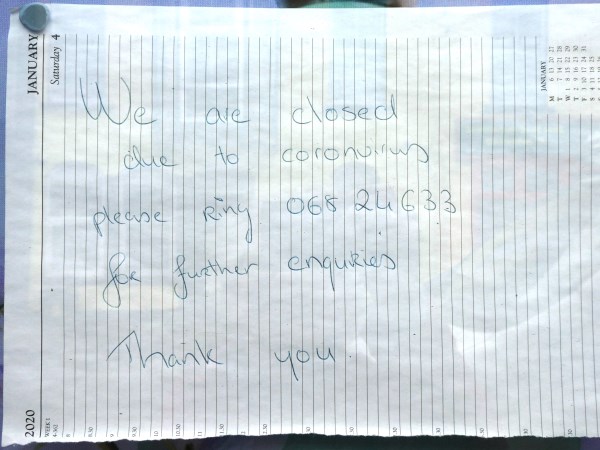 We are closed
due to coronavirus
please ring 068 24633
for further enquries
Thank you.
JANUARY
Saturday 4
2020
WEEK 1
JANUARY
M 6 13 20 27
T 7 14 21 28
W 1 8 15 22 29
T 2 9 16 23 30
F 3 10 17 24 31
S 4 11 18 25